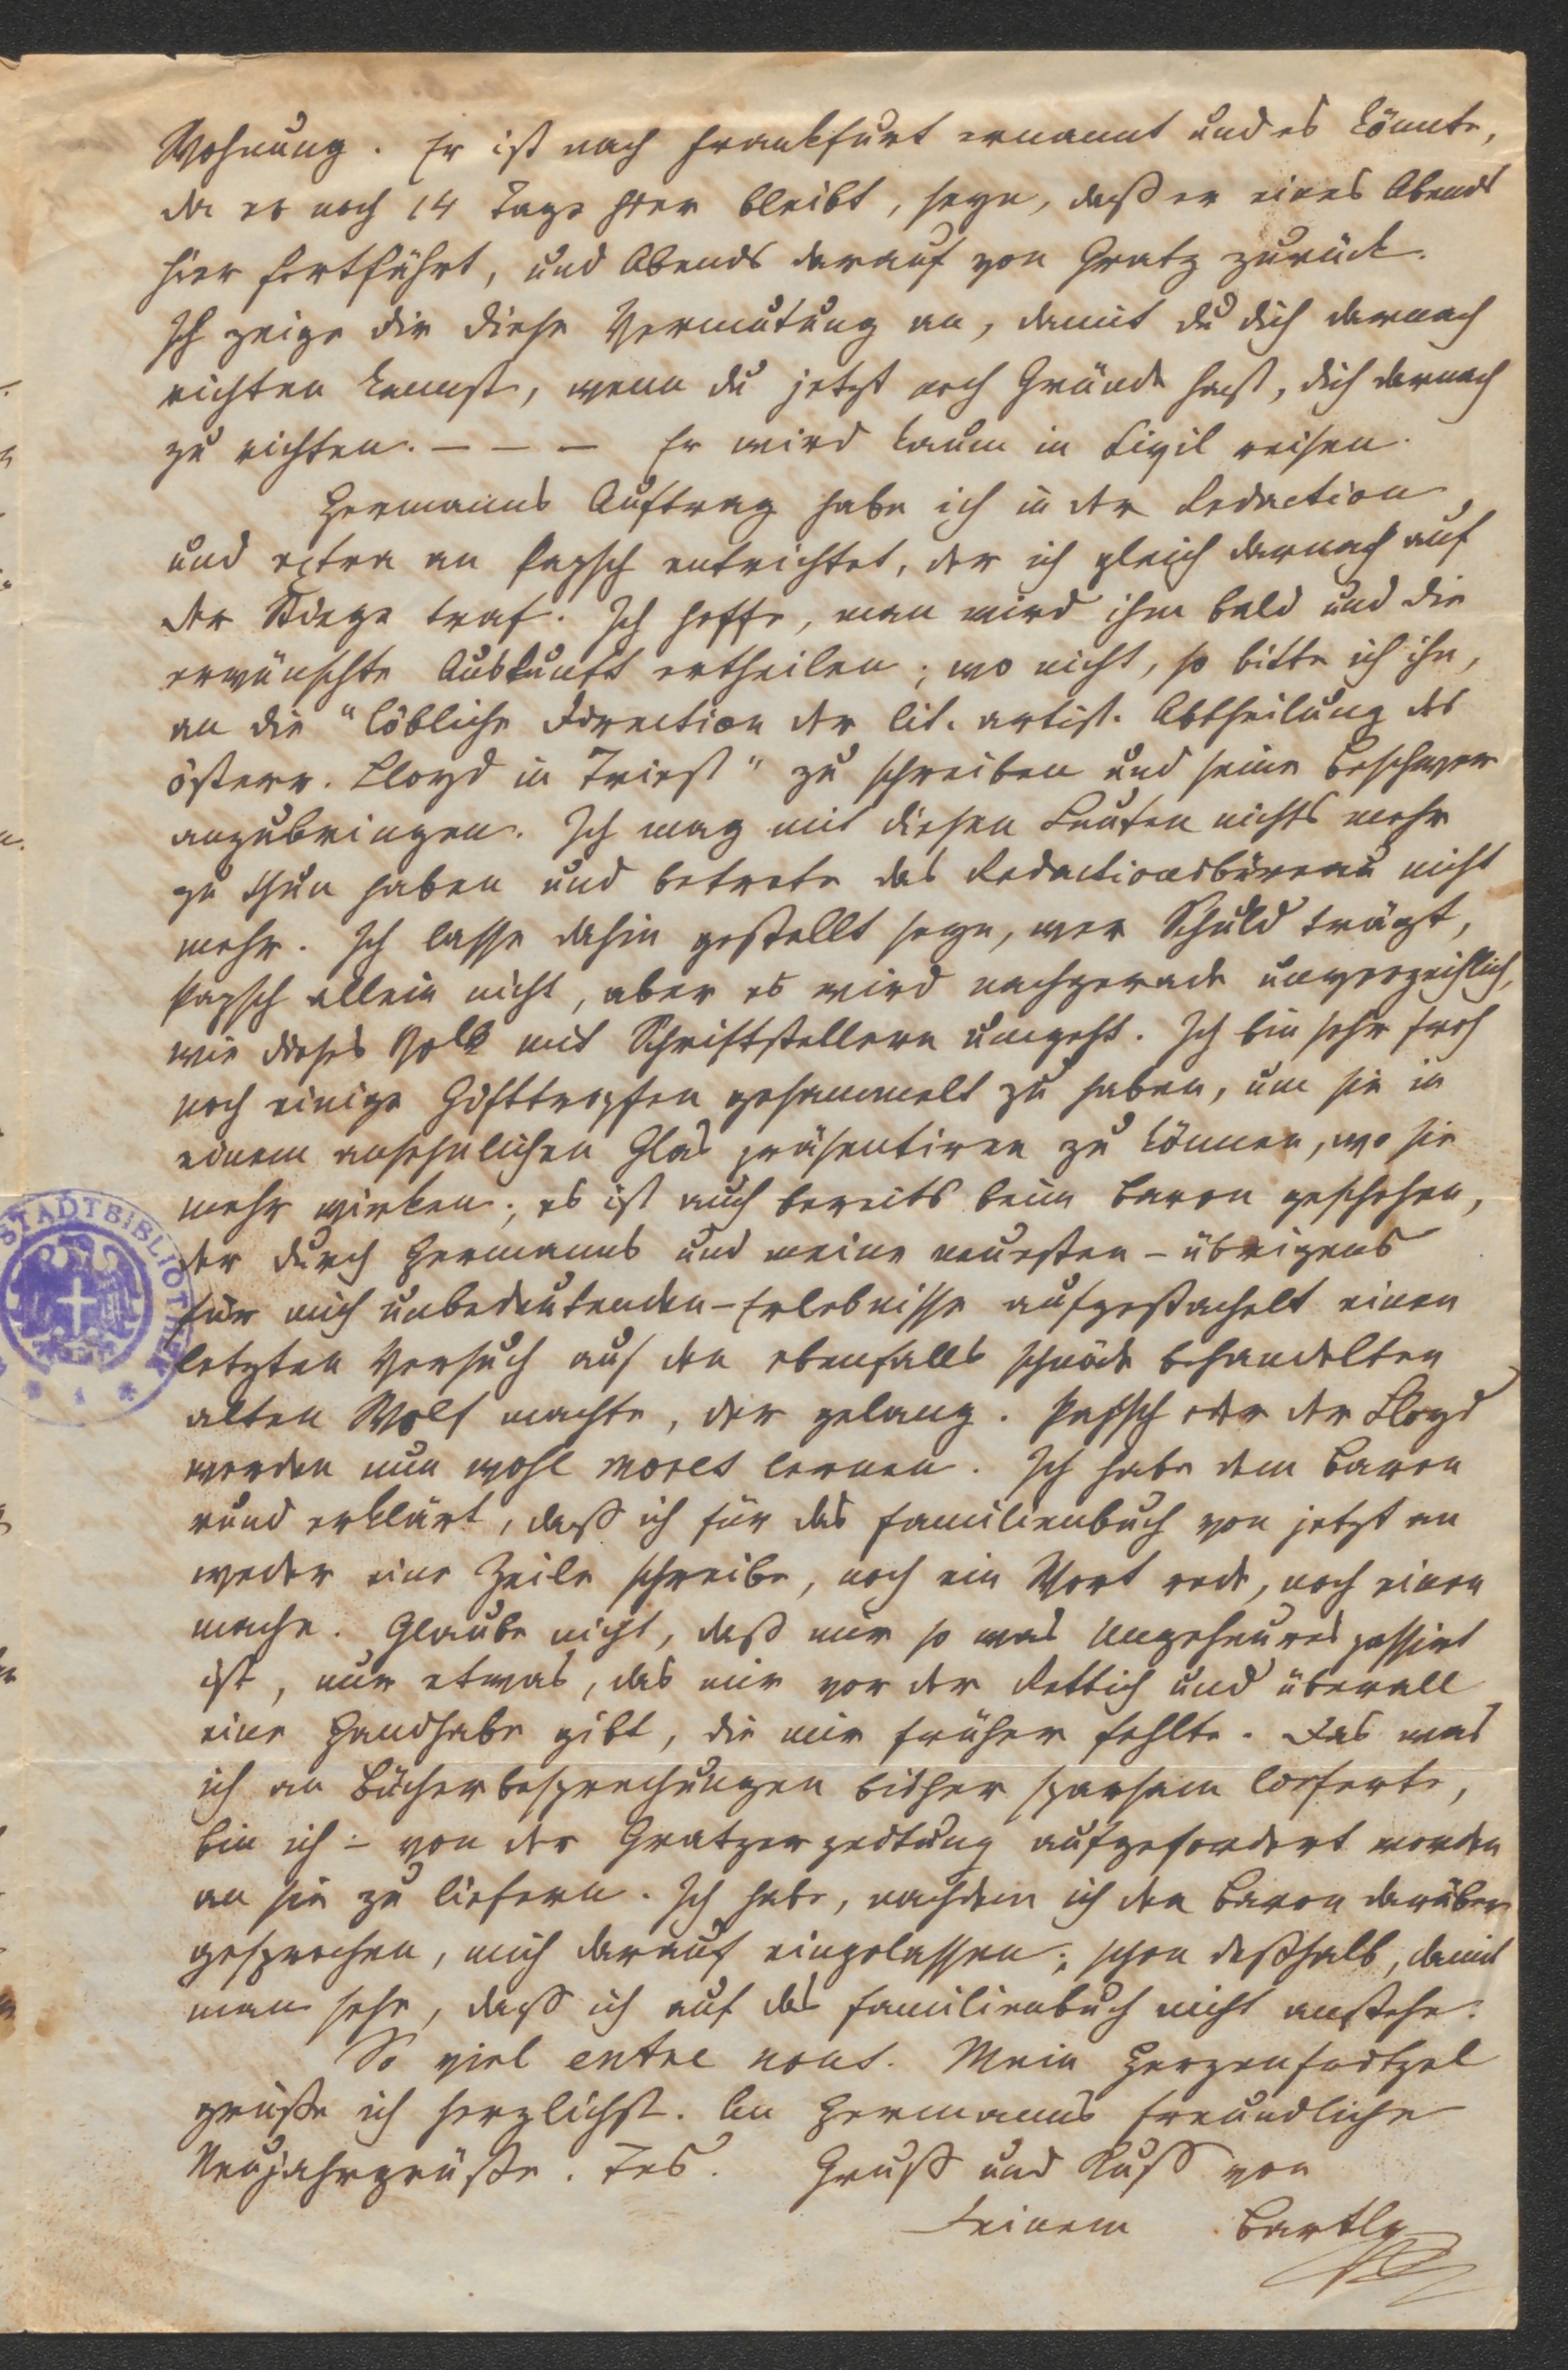 Wohnung. Er ist nach Frankfurt ernannt und es könnte,
da er noch 14 Tage hier bleibt, seyn, daß er eines Abends
hier fortfährt, und Abends darauf von Gratz zurück.
Ich zeige dir diese Vermutung an, damit du dich darnach
richten kannst, wenn du jetzt noch Gründe hast, dich darnach
zu richten. – – – Er wird kaum in Civil reisen.
Hermanns Auftrag habe ich in der Redaction
und extra an Papsch entrichtet, den ich gleich darnach auf
der Stiege traf. Ich hoffe, man wird ihm bald und die
erwünschte Auskunft ertheilen; wo nicht, so bitte ich ihn,
an die "löbliche Direction der lit. artist. Abtheilung des
österr. Lloyd in Triest" zu schreiben und seine Beschwer
anzubringen. Ich mag mit diesen Leuten nichts mehr
zu thun haben und betrete das Redactionsbüreau nicht
mehr. Ich lasse dahin gestellt seyn, wer Schuld trägt,
Papsch allein nicht, aber es wird nachgerade unverzeihlich,
wie dieses Volk mit Schriftstellern umgeht. Ich bin sehr froh
noch einige Gifttropfen gesammelt zu haben, um sie in
einem ansehnlichen Glas präsentiren zu können, wo sie
mehr wirken; es ist auch bereits beim Baron geschehen,
der durch Hermanns und meine neuesten – übrigens
für mich unbedeutenden – Erlebnisse aufgestachelt einen
letzten Versuch auf den ebenfalls schnöde behandelten
alten Wolf machte, der gelang. Papsch oder der Lloyd
werden nun wohl mores lernen. Ich habe dem Baron
rund erklärt, daß ich für das Familienbuch von jetzt an
weder eine Zeile schreibe, noch ein Wort rede, noch einen
mache. Glaube nicht, daß mir so was Ungeheures passirt
ist, nur etwas, das mir vor der Rettich und überall
eine Handhabe gibt, die mir früher fehlte. Das was
ich an Bücherbesprechungen bisher sparsam lieferte,
bin ich – von der Gratzerzeitung aufgefordert worden
an sie zu liefern. Ich habe, nachdem ich den Baron darüber
gesprochen, mich darauf eingelassen; schon deßhalb, damit
man sehe, daß ich auf das Familienbuch nicht anstehe.
So viel entre nous. Mein
grüße ich herzlichst. An Hermanns freundliche
Neujahrgrüße. Gruß und Kuß von
Deinem Bartly
STADTBIBLIOTHEK
* 1 *